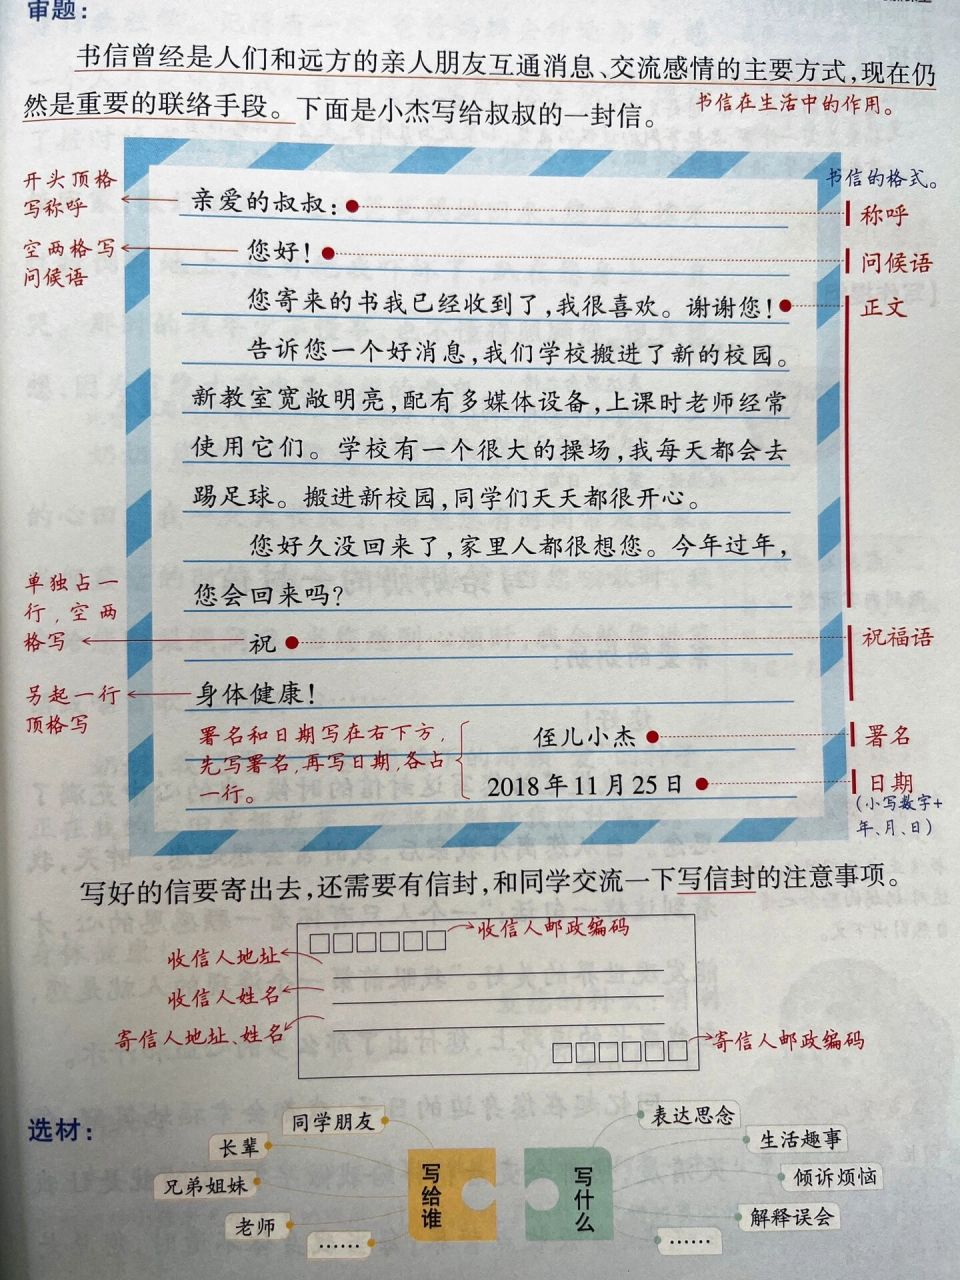 审题：
书信曾经是人们和远方的亲人朋友互通消息、交流感情的主要方式，现在仍
然是重要的联络手段。下面是小杰写给叔叔的一封信。
书信在生活中的作用。
书信的格式。
开头顶格
写称呼
亲爱的叔叔：
称呼
空两格写
问候语
您好！
问候语
您寄来的书我已经收到了，我很喜欢。谢谢您！
正文
告诉您一个好消息，我们学校搬进了新的校园。
新教室宽敞明亮，配有多媒体设备，上课时老师经常
使用它们。学校有一个很大的操场，我每天都会去
踢足球。搬进新校园，同学们天天都很开心。
您好久没回来了，家里人都很想您。今年过年，
您会回来吗？
单独占一
行，空两
格写
祝
祝福语
另起一行
顶格写
身体健康！
署名和日期写在右下方，
先写署名，再写日期，各占
一行。
侄儿小杰
署名
2018年11月25日
日期
（小写数字+
年、月、日）
写好的信要寄出去，还需要有信封，和同学交流一下写信封的注意事项。
收信人邮政编码
收信人地址
收信人姓名
寄信人地址、姓名
寄信人邮政编码
选材：
同学朋友
长辈
兄弟姐妹
老师
……
写给谁
写什么
表达思念
生活趣事
倾诉烦恼
解释误会
……